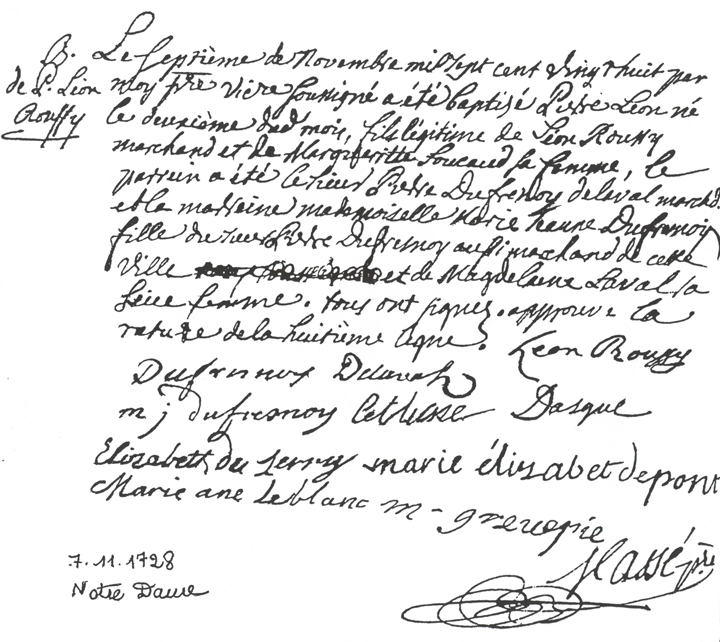 B.
de P. Léon
Rouffy
Le septième de Novembre mil sept cent vingt huit par
moy prêtre vicre soussigné a été baptisé Pierre Léon né
le deuxième dud mois, fils légitime de Léon Rouffy
marchand et de Margueritte Foucaud sa femme, le
parrein a été le sieur Pierre Dufresnoy delaval march.d
et la marreine mademoiselle Marie Jeanne Dufresnoy
fille du sieur Pierre Dufresnoy aussi marchand de cette
ville et de Magdelaine Laval sa
femme. tous ont signez. approuvé la
rature de la huitième ligne. Léon Rouffy
Dufresnoy Delaval
m j dufresnoy Dasque
Elizabeth du marie élizabet depont
Marie ane Leblanc m
ptre
7.11.1728
Notre Dame